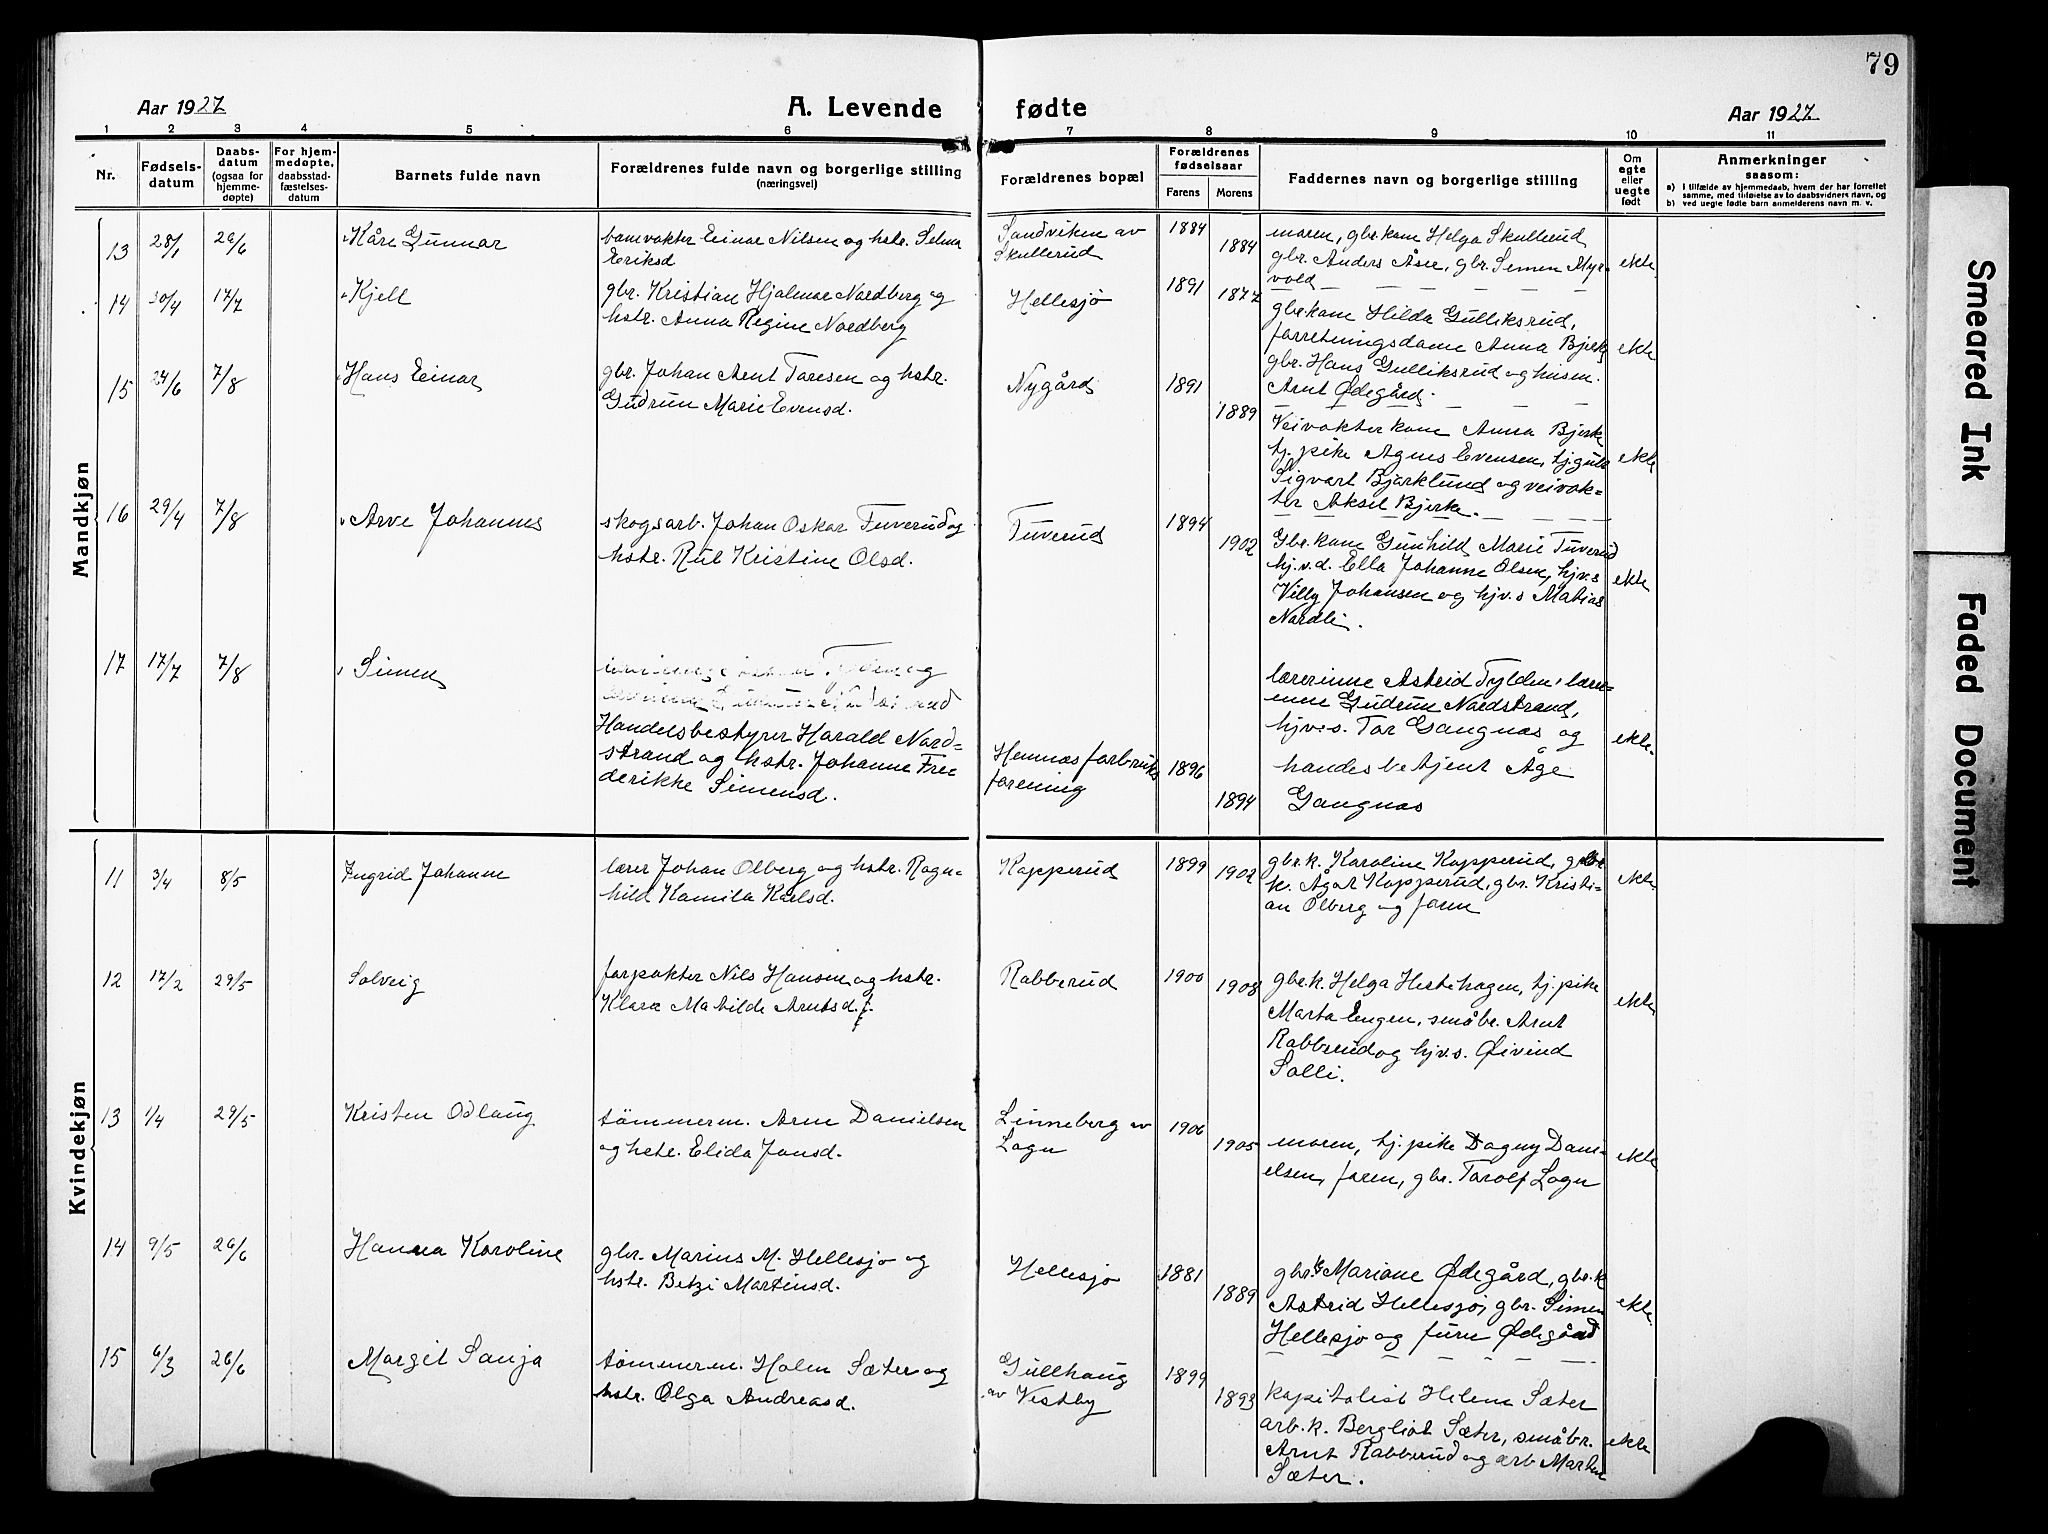 79
Aar 1927
A. Levende fødte
Aar 1927
1 2 3 4 5 6 7 8 9 10 11
Nr.
Fødsels-
datum
Daabs-
datum
(ogsaa for
hjemme-
døpte)
For hjem-
medøpte,
daabsstad-
fæstelses-
datum
Barnets fulde navn
Forældrenes fulde navn og borgerlige stilling
(næringsvei)
Forældrenes bopæl
Forældrenes
fødselsaar
Farens Morens
Faddernes navn og borgerlige stilling
Om
egte
eller
uegte
født
Anmerkninger
saasom:
a) I tilfælde av hjemmedaab, hvem der har forrettet
samme, med tilføielse av to daabsvidners navn, og
b) ved uegte fødte barn anmelderens navn m. v.
Mandkjøn
13 28/1 26/6 Kåre Gunnar
bomvokter Einar Nilsen og hstr. Selma
Eriksd
Sandviken av
Skullerud
1884
1884
moren, gbr.kone Helga Skullerud
gbr. Anders Åser, gbr. Simen Myr-
vold
ekte
14 30/4 17/7 Kjell
gbr. Kristian Hjalmar Nordberg og
hstr. Anna Regine Nordberg
Hellesjø
1891
1877
gbrkone Hilda Gulliksrud,
forretningsdame Anna Bjerke
gbr. Hans Gulliksrud og husm.
Arnt Ødegård.
ekte
15 24/6 7/8 Hans Einar
gbr. Johan Arnt Toresen og hstr.
Gudrun Marie Evensd.
Nygård
1891
1889
Veivokterkone Anna Bjerke
tj. pike Agnes Evensen, tj.gutt
Sigvart Bjørklund og veivok-
ter Aksel Bjerke.
ekte
16 29/4 7/8 Arve Johannes
skogsarb. Johan Oskar Tuverud og
hstr. Rut Kristine Olsd.
Tuverud
1894
1902
Gbr.kone Gunhild Marie Tuverud
hj.v.d. Ella Johanne Olsen, hjv.s
Villy Johansen og hjv.s Matias
Nordli.
ekte
17 17/7 7/8 Simen
Handelsbestyrer Harald Nord-
strand og hstr. Johanne Fre
derikke Simensd.
Hemnes forbruks
forening
1896
1894
lærerinne Astrid Tylden, lærer-
inne Gudrun Nordstrand,
hjv.s. Tor Gangnæs og
handesbetjent Åge
Gangnæs
ekte.
Kvindekjøn
11 3/4 8/5 Ingrid Johanne
lærer Johan Olberg og hstr. Ragn-
hild Kamila Karlsd.
Kopperud
1899
1902
gbr.k. Karoline Kopperud, gbr
k. Ågot Kopperud, gbr. Kristi-
an Olberg og faren
ekte
12 17/2 29/5 Solveig
forpakter Nils Hansen og hstr.
Klara Matilde Arntsd.
Rabberud
1900
1908
gbr.k. Helga Hestehagen, tj. pike
Marta Engen, småbr. Arnt
Rabberud og hjv.s. Øivind
Solli.
ekte
13 1/4 29/5 Kristen Odlaug
tömmerm. Arne Danielsen
og hstr. Elida Jonsd.
Linneberg av
Logn
1906
1905
moren, tj. pike Dagny Dani-
elsen, faren, gbr. Torolf Logn
ekte
14 9/5 26/6 Hanna Karoline
gbr. Marius M. Hellesjø og
hstr. Betzi Martinsd.
Hellesjø
1881
1889
gbr.k Mariane Ødegård, gbr.k
Astrid Hellesjø, gbr. Simen
Hellesjø og Ødegård
ekte.
15 6/3 26/6 Margit Sonja
tömmerm. Holm Sæter og
hstr. Olga Andreasd.
Gullhaug
av Vestby
1899
1893
kapitalist Helene Sæter
arb.k. Bergliot Sæter, småbr.
Arnt Rabberud og arb Martin
Sæter.
ekte
Smeared Ink
Faded Document